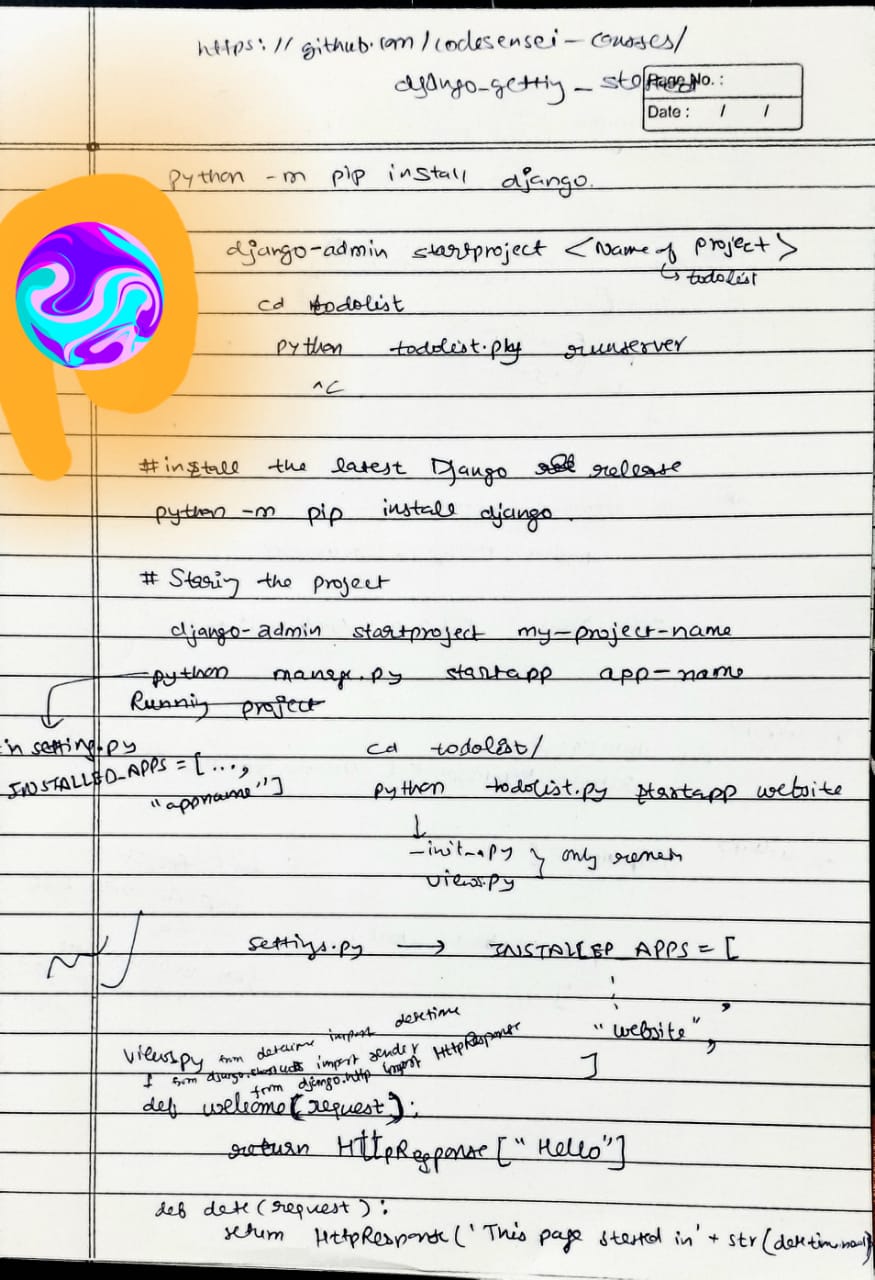 https://github.com/codesensei-courses/
django-getting_started
Page No.:
Date: / /
python -m pip install django.
django-admin startproject <Name of project>
↳ todolist
cd todolist
python todolist.py runserver
^C
#install the latest Django release
python -m pip install django
# Staring the project
django-admin startproject my-project-name
python manage.py startapp app-name
Running project
in setting.py
INSTALLED_APPS = [...,
"appname"]
cd todolist/
python todolist.py startapp website
↓
_init_.py } only
views.py
settings.py → INSTALLED_APPS = [
"website",
]
views.py from datetime import datetime
from django.shortcuts import render
from django.http import HttpResponse
def welcome(request):
return HttpResponse["Hello"]
def date(request):
return HttpResponse('This page started in' + str(datetime.now()